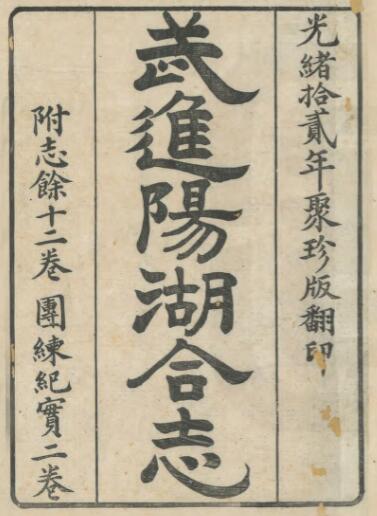 光緒拾貳年聚珍版翻印
武進陽湖合志
附志餘十二卷 團練紀實二卷